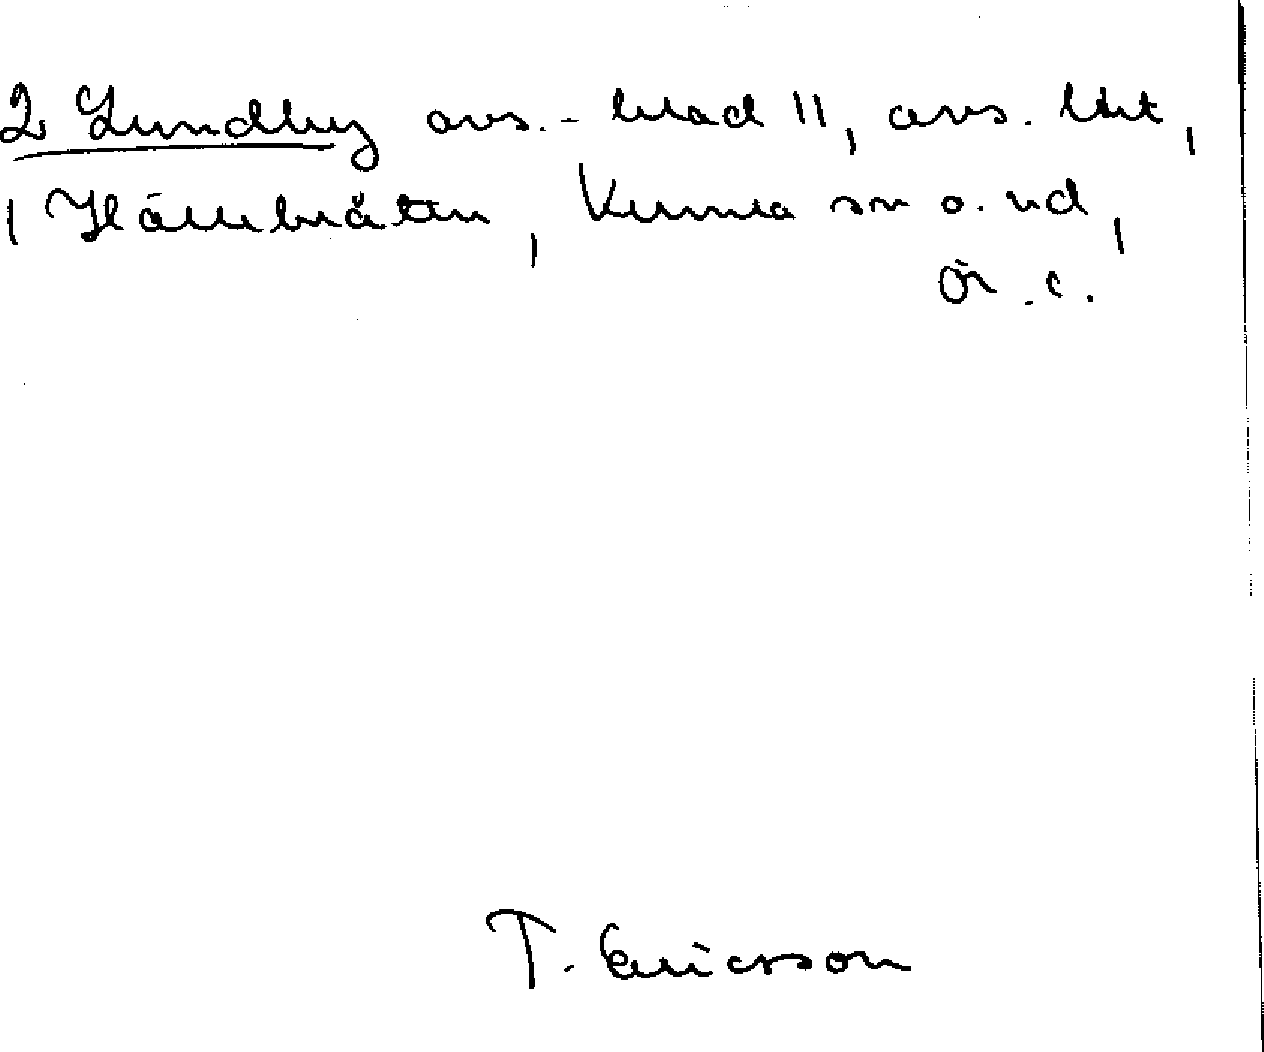 2 Lundby avs.-blad 11, avs. likt,
1 Hällebråten, Kumla sn o. hd,
Ör. l.
T. Ericsson